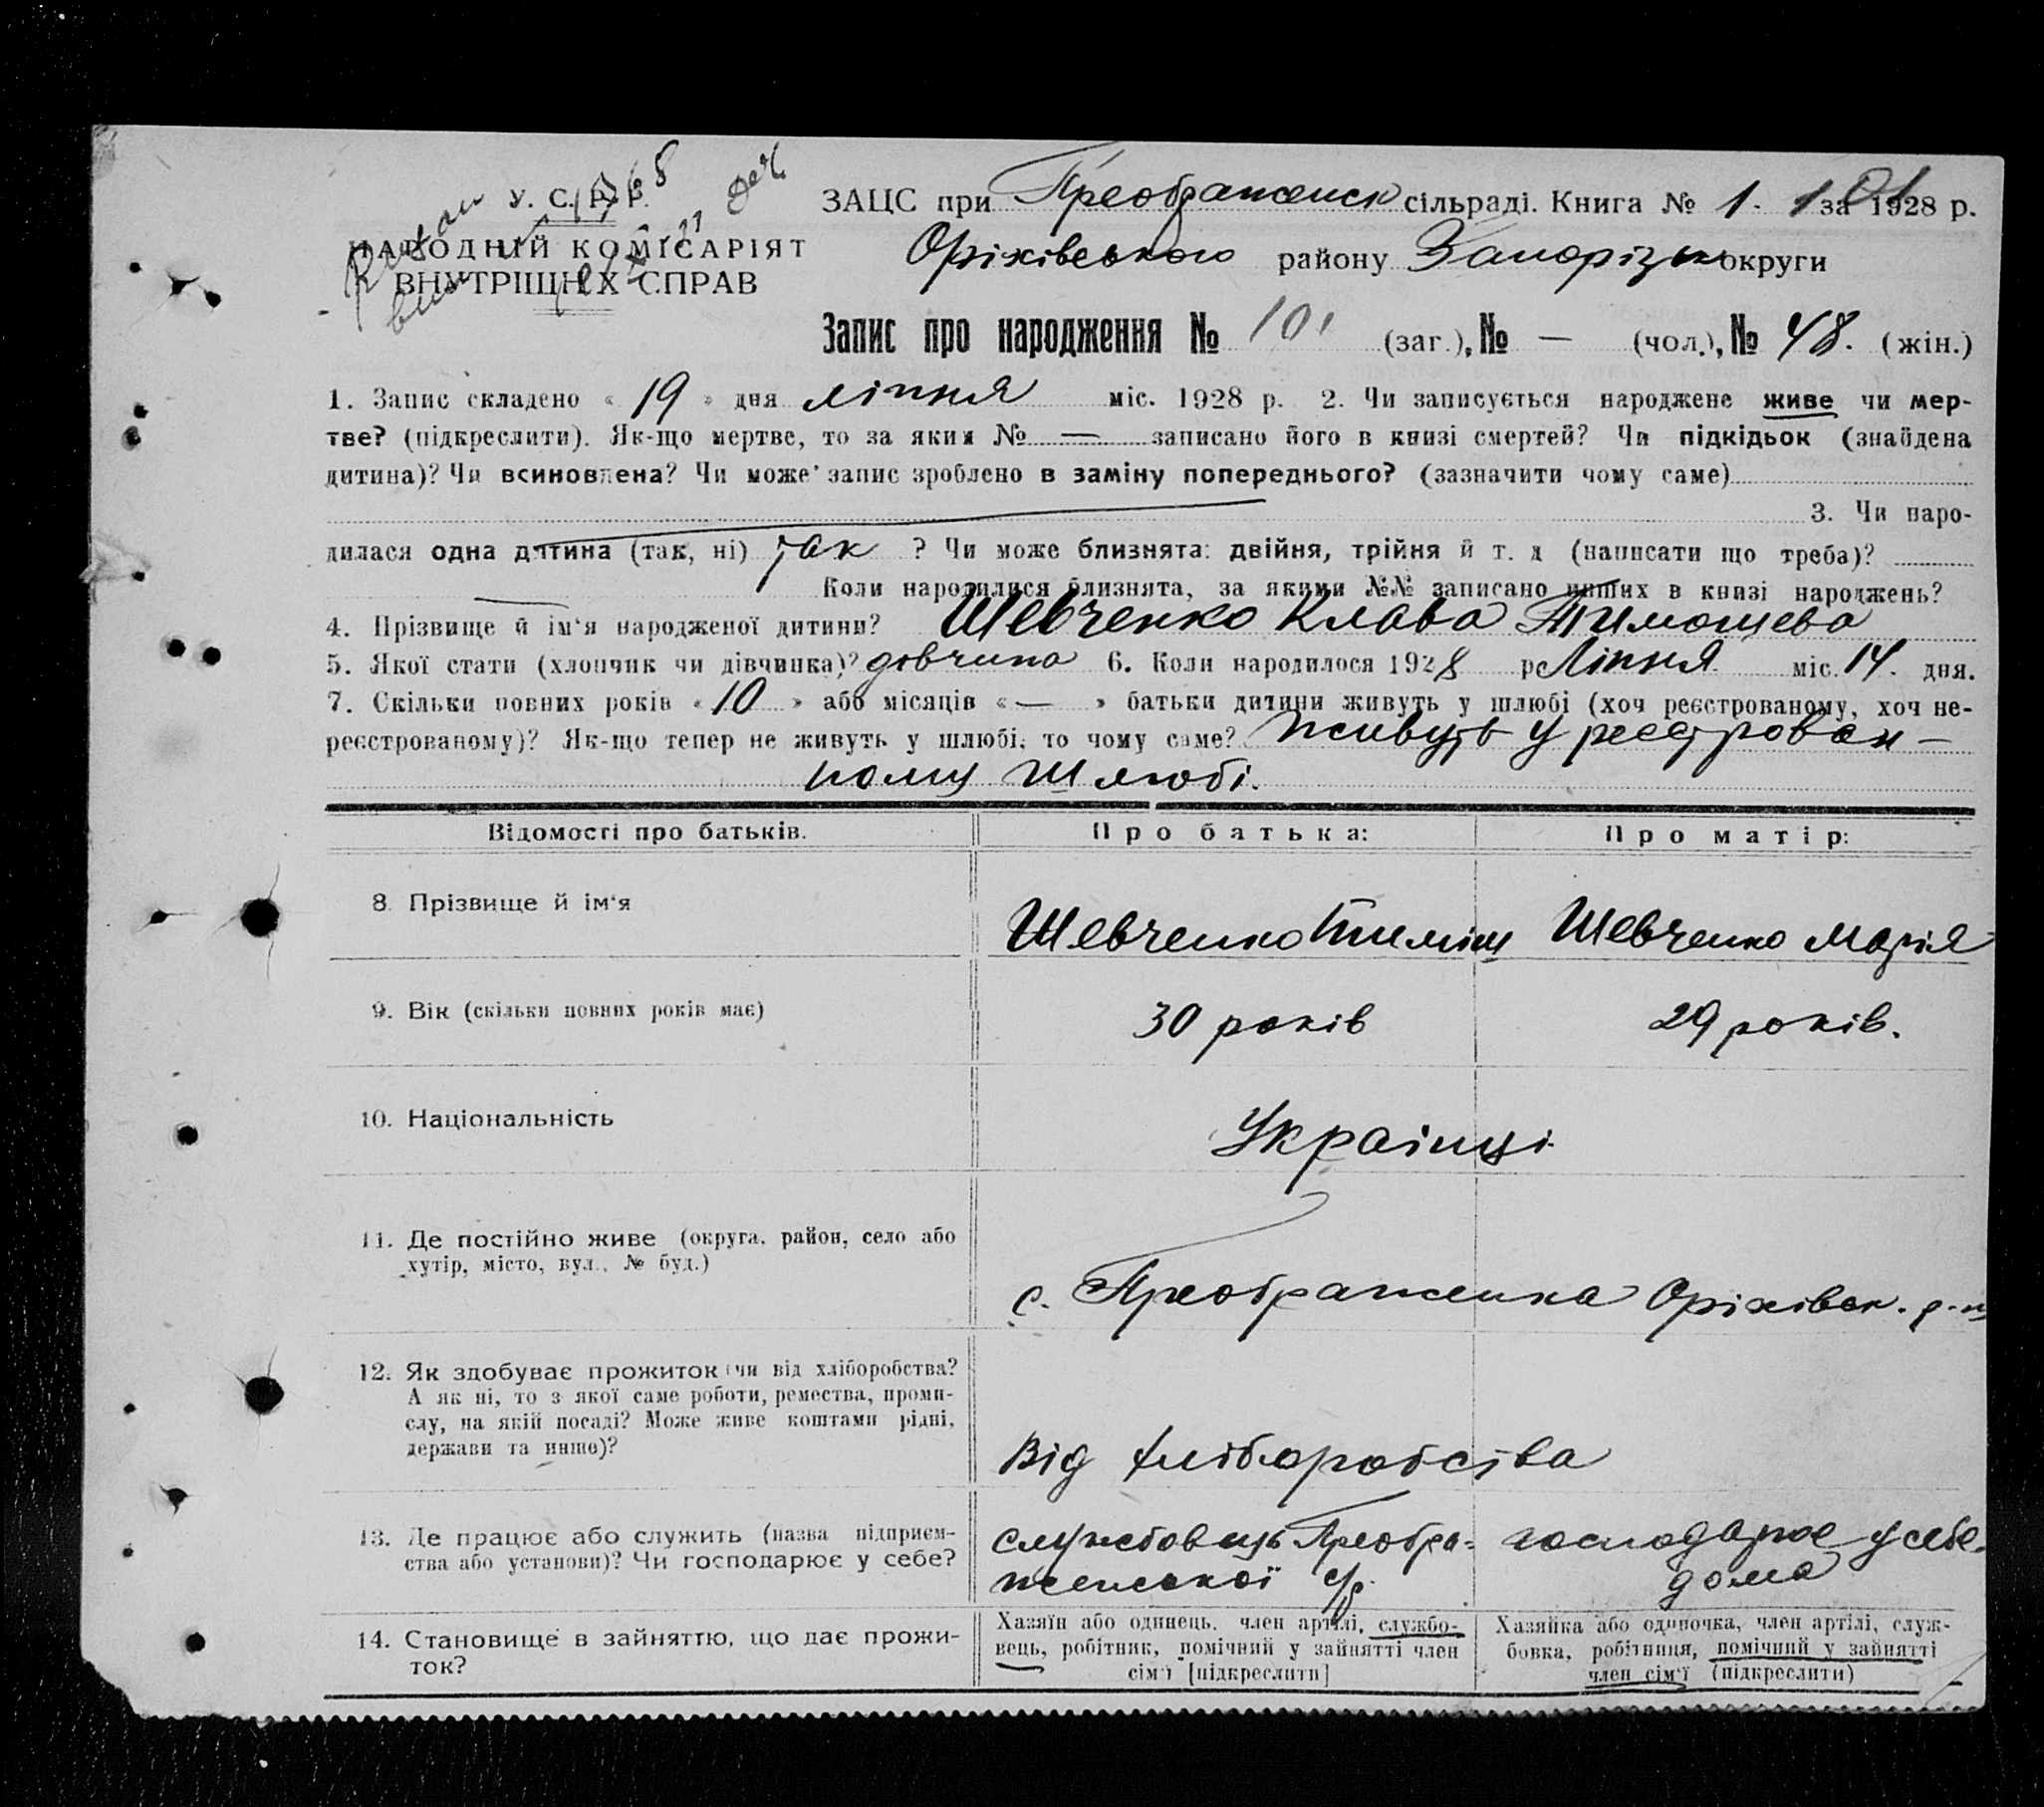 У. С. Р. Р.
НАРОДНІЙ КОМІСАРІЯТ
ВНУТРІШНІХ СПРАВ
ЗАЦС при Преображенск сільраді. Книга № 1. за 1928 р.
Оріхівського району Запорізьк округи
Запис про народження № 101 (заг.), № — (чол.), № 48. (жін.)
1. Запис складено « 19 » дня ліпня міс. 1928 р. 2. Чи записується народжене живе чи мер-
тве? (підкреслити). Як-що мертве, то за яким № — записано його в книзі смертей? Чи підкідьок (знайдена
дитина)? Чи всиновлена? Чи може запис зроблено в заміну попереднього? (зазначити чому саме)
3. Чи наро-
дилася одна дитина (так, ні) так ? Чи може близнята: двійня, трійня й т. д (написати що треба)?
Коли народилися близнята, за якими №№ записано инших в книзі народжень?
4. Прізвище й ім‘я народженої дитини? Шевченко Клава Тимошева
5. Якої стати (хлопчик чи дівчинка)? дівчина 6. Коли народилося 1928 р Ліпня міс. 14. дня.
7. Скільки повних років « 10 » або місяців « — » батьки дитини живуть у шлюбі (хоч реєстрованому, хоч не-
реєстрованому)? Як-що тепер не живуть у шлюбі, то чому саме? живуть у реєстрован-
ному шлюбі.
Відомості про батьків. Про батька: Про матір:
8. Прізвище й ім‘я Шевченко Тиміш Шевченко Марія
9. Вік (скільки повних років має) 30 років 29 років.
10. Національність Українці
11. Де постійно живе (округа, район, село або
хутір, місто, вул., № буд.)
с. Преображенка Оріхівск. р-н
12. Як здобуває прожиток (чи від хліборобства?
А як ні, то з якої саме роботи, ремества, проми-
слу, на якій посаді? Може живе коштами рідні,
держави та инше)?
Від хліборобства
13. Де працює або служить (назва підприєм-
ства або установи)? Чи господарює у себе?
службовець Преобра-
женської с/р.
господарює у себе
дома
14. Становище в зайняттю, що дає прожи-
ток?
Хазяїн або одинець, член артілі, службо-
вець, робітник, помічний у зайнятті член
сім‘ї [підкреслити]
Хазяйка або одиночка, член артілі, служ-
бовка, робітниця, помічний у зайнятті
член сім‘ї (підкреслити)